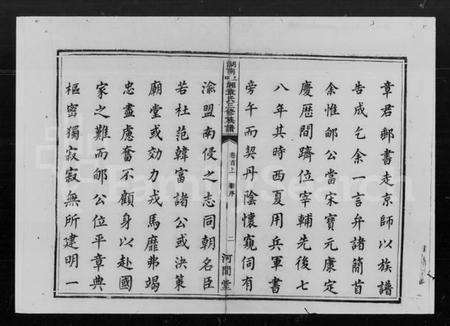 章君郵書走京師以族譜
告成乞余一言弁諸簡首
余惟郇公當宋寶元康定
慶歷間躋位宰輔先後七
八年其時西夏用兵軍書
旁午而契丹陰懷窺伺有
湖南上湘章氏三修族譜
卷首上 序
二
河間堂
渝盟南侵之志同朝名臣
若杜范韓富諸公或決策
廟堂或効力戎馬靡弗竭
忠盡慮奮不顧身以赴國
家之難而郇公位平章典
樞密獨寂寂無所建明一